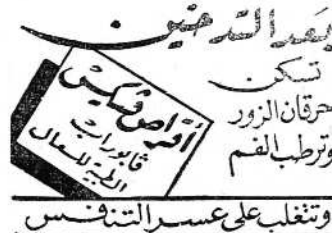 بعد التدخين
تسكن
حرقان الزور
وترطب الفم
أقراص فيكس
ڤابوراب
الطبية للسعال
وتتغلب على عسر التنفس